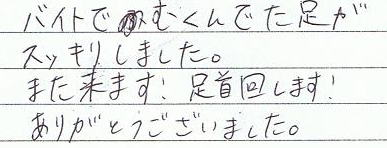 バイトでむくんでた足が
スッキリしました。
また来ます! 足首回します!
ありがとうございました。